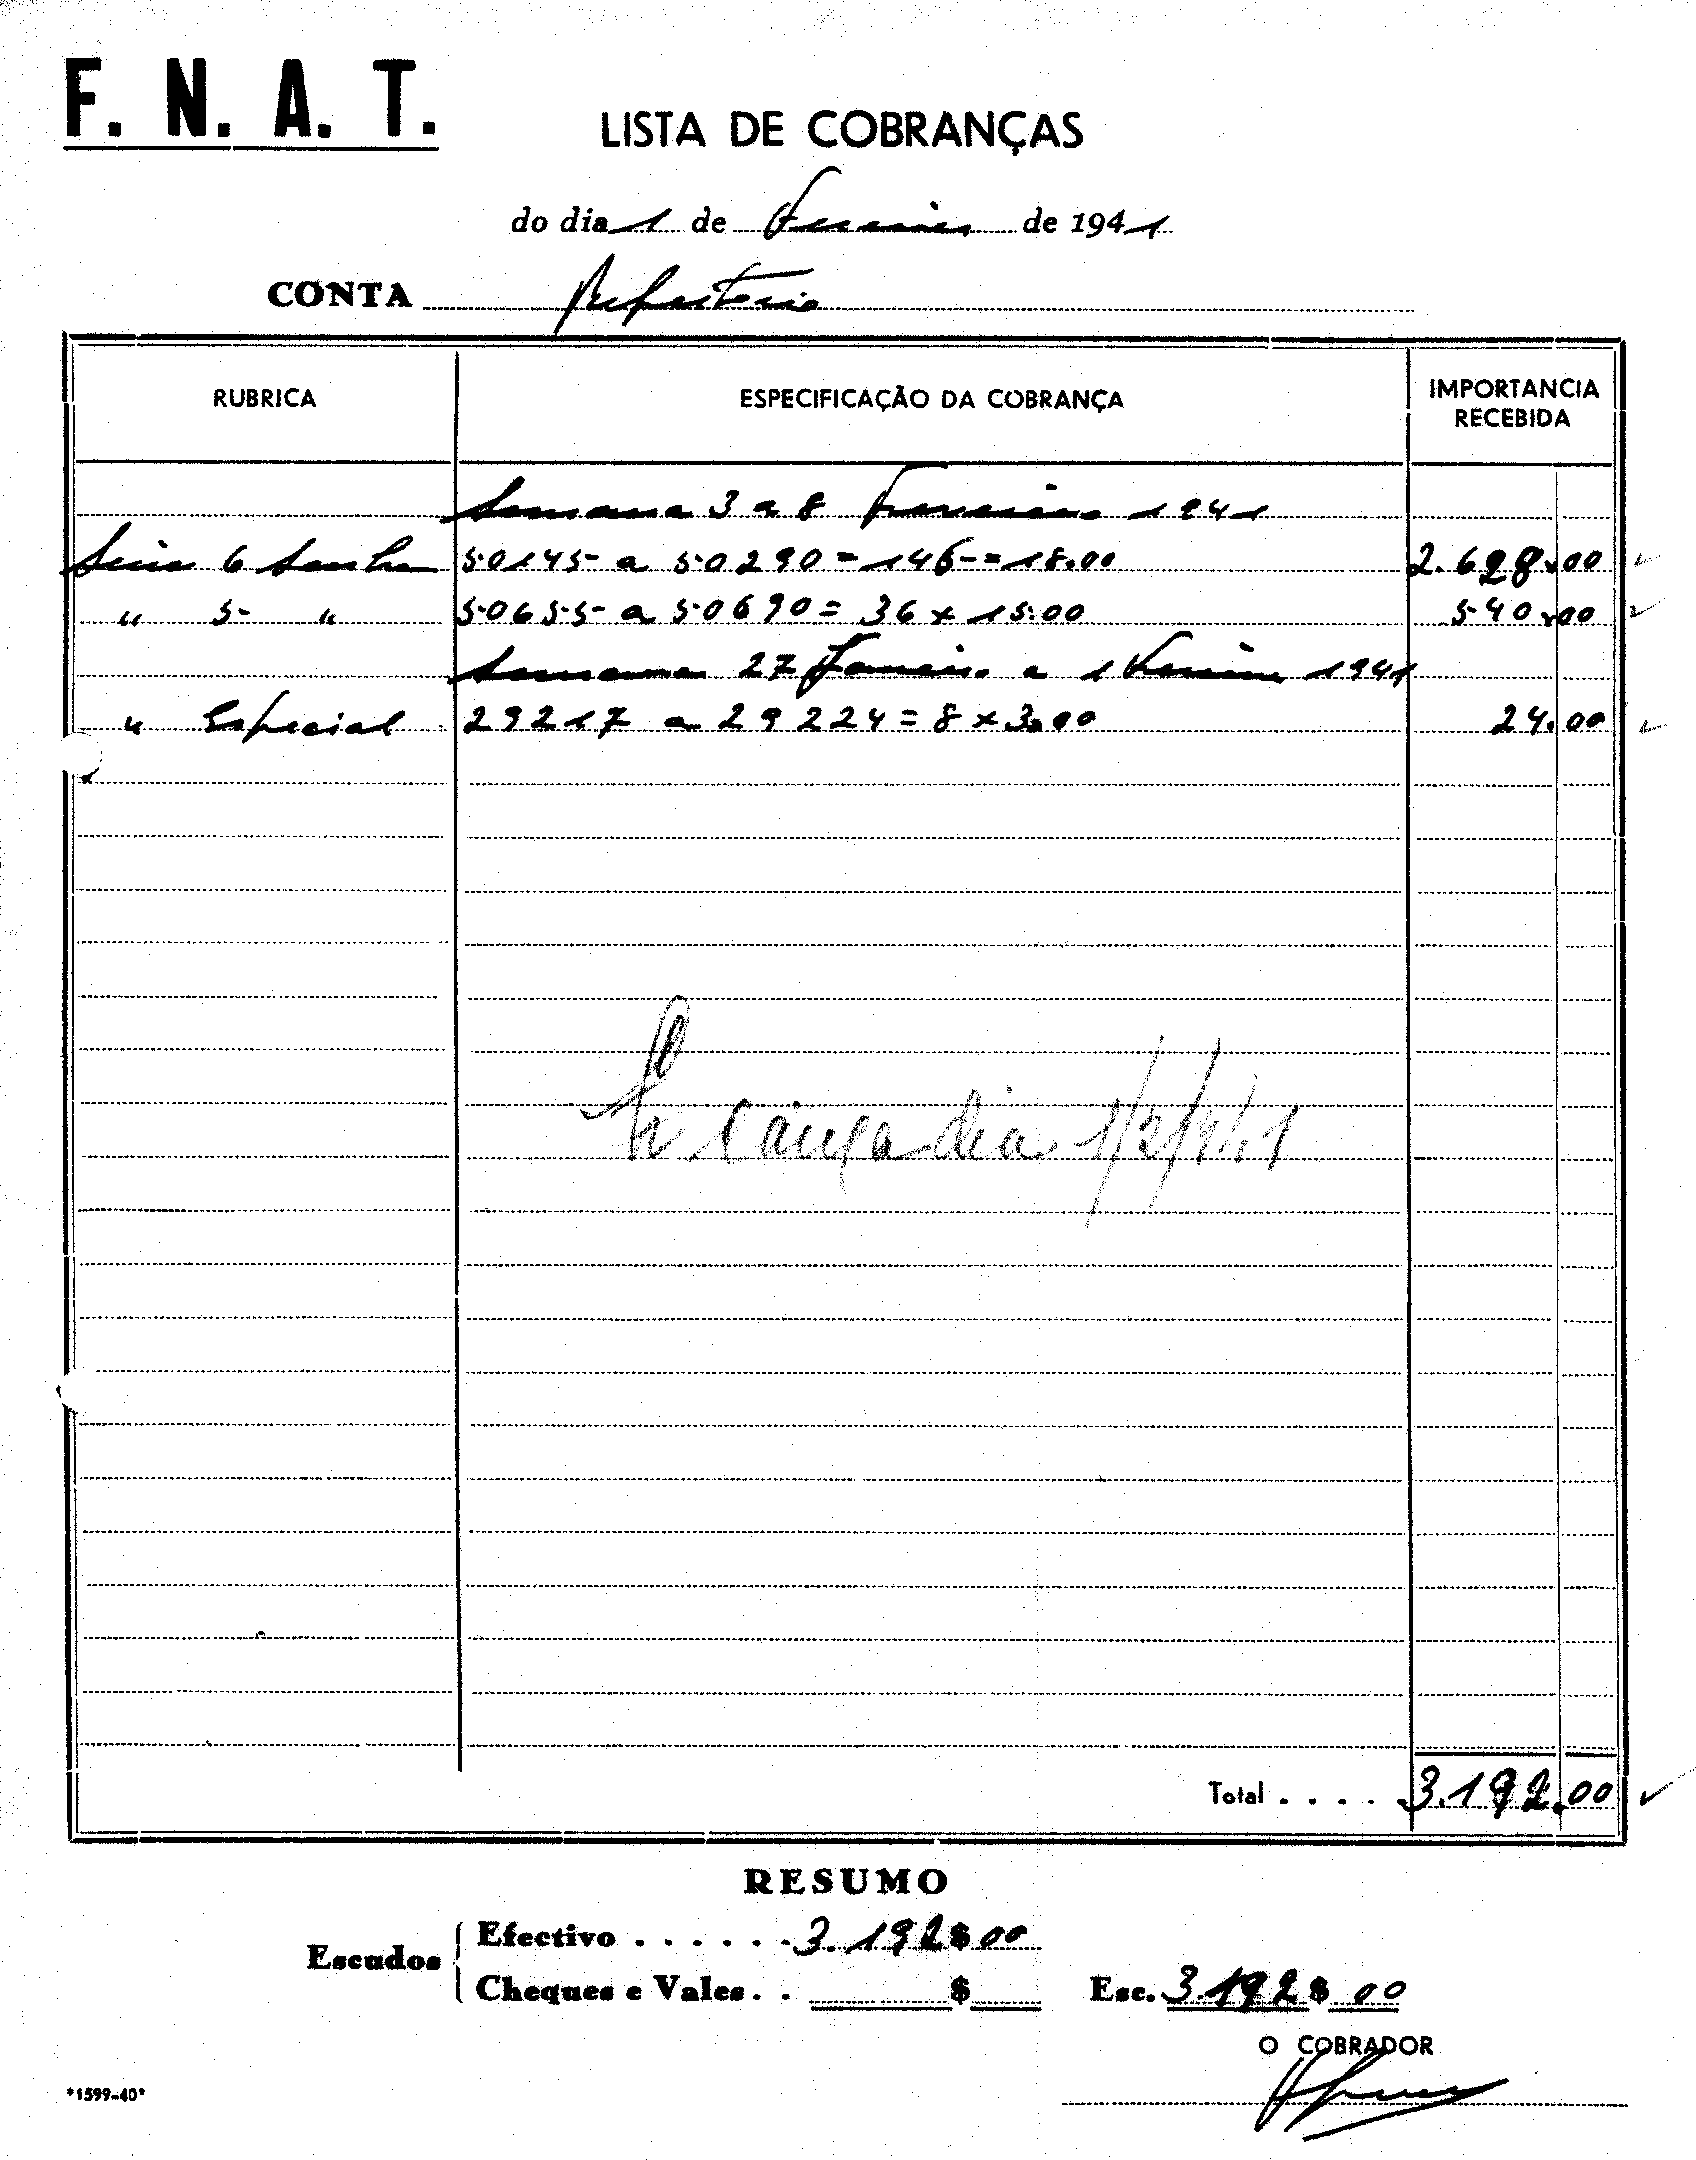 F. N. A. T.
LISTA DE COBRANÇAS
do dia 1 de Fevereiro de 1941
CONTA Refeitorio
RUBRICA ESPECIFICAÇÃO DA COBRANÇA IMPORTANCIA RECEBIDA
Semana 3 a 8 Fevereiro 1941
Série 6 Senhas 50145 a 50290 = 146 = 18.00 2.628.00
" 5 " 50655 a 50690 = 36 x 15.00 540.00
Semana 27 Janeiro a 1 Fevereiro 1941
" Especial 29217 a 29224 = 8 x 3.00 24.00
dia 1/2/941
Total . . . . 3.192.00
RESUMO
Escudos
Efectivo . . . . . . 3.192$00
Cheques e Vales. . $ Esc. 3.192$00
O COBRADOR
*1599-40*